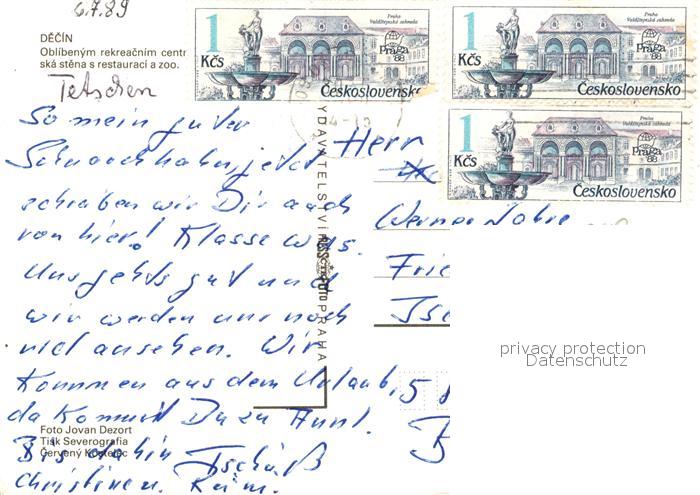 6.7.89
DĚČÍN
Oblíbeným rekreačním centr
ská stěna s restaurací a zoo.
Tetschen
1 Kčs
Praha
Valdštejnská zahrada
Praga '88
Československo
1 Kčs
Praha
Valdštejnská zahrada
Praga '88
Československo
1 Kčs
Praha
Valdštejnská zahrada
Praga '88
Československo
So mein guter
jetzt
schreiben wir Dir auch
von hier! Klasse was.
Uns gehts gut und
wir werden uns noch
viel ansehen. Wir
kommen aus dem Urlaub,
da kommst Du zu
Bis dahin Tschüß
Herr
Werner
Frie
5
B
YDAVATELSTVÍ PRESSFOTO PRAHA
Foto Jovan Dezort
Tisk Severografia
Červený Kostelec
privacy protection
Datenschutz